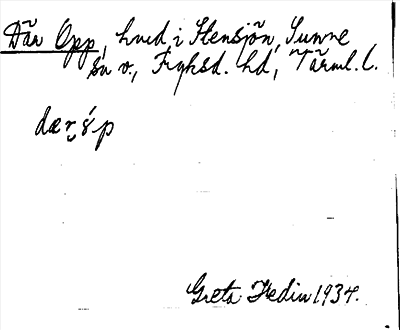 Där Opp, hmd i Stensjön, Sunne
sn v., Fryksd. hd, Värml. l.
dæṛ ǵp
Greta Hedin 1934.